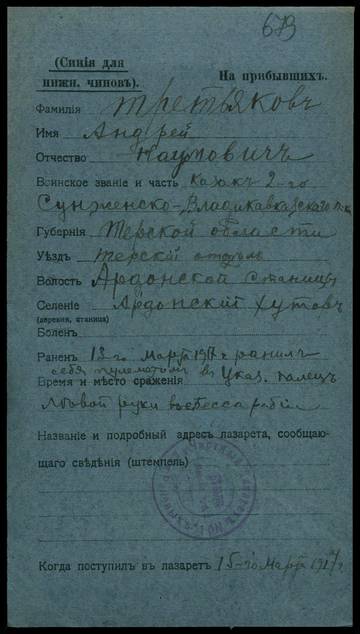 673
(Синія для
нижн. чиновъ).
На прибывшихъ.
Фамилія Третьяковъ
Имя Андрей
Отчество Наумовичъ
Воинское званіе и часть Казакъ 2-го
Сунженско-Владикавказскаго п-ка
Губернія Терской области
Уѣздъ Терскій отдѣлъ
Волость Ардонской станицы
Селеніе Ардонскій Хуторъ
(деревня, станица)
Боленъ
Раненъ 13-го Марта 1917 г ранилъ
себя пулеметомъ въ Указ. палецъ
Время и мѣсто сраженія
лѣвой руки
Названіе и подробный адресъ лазарета, сообщаю-
щаго свѣдѣнія (штемпель)
Когда поступилъ въ лазаретъ 15-го Марта 1917 г.